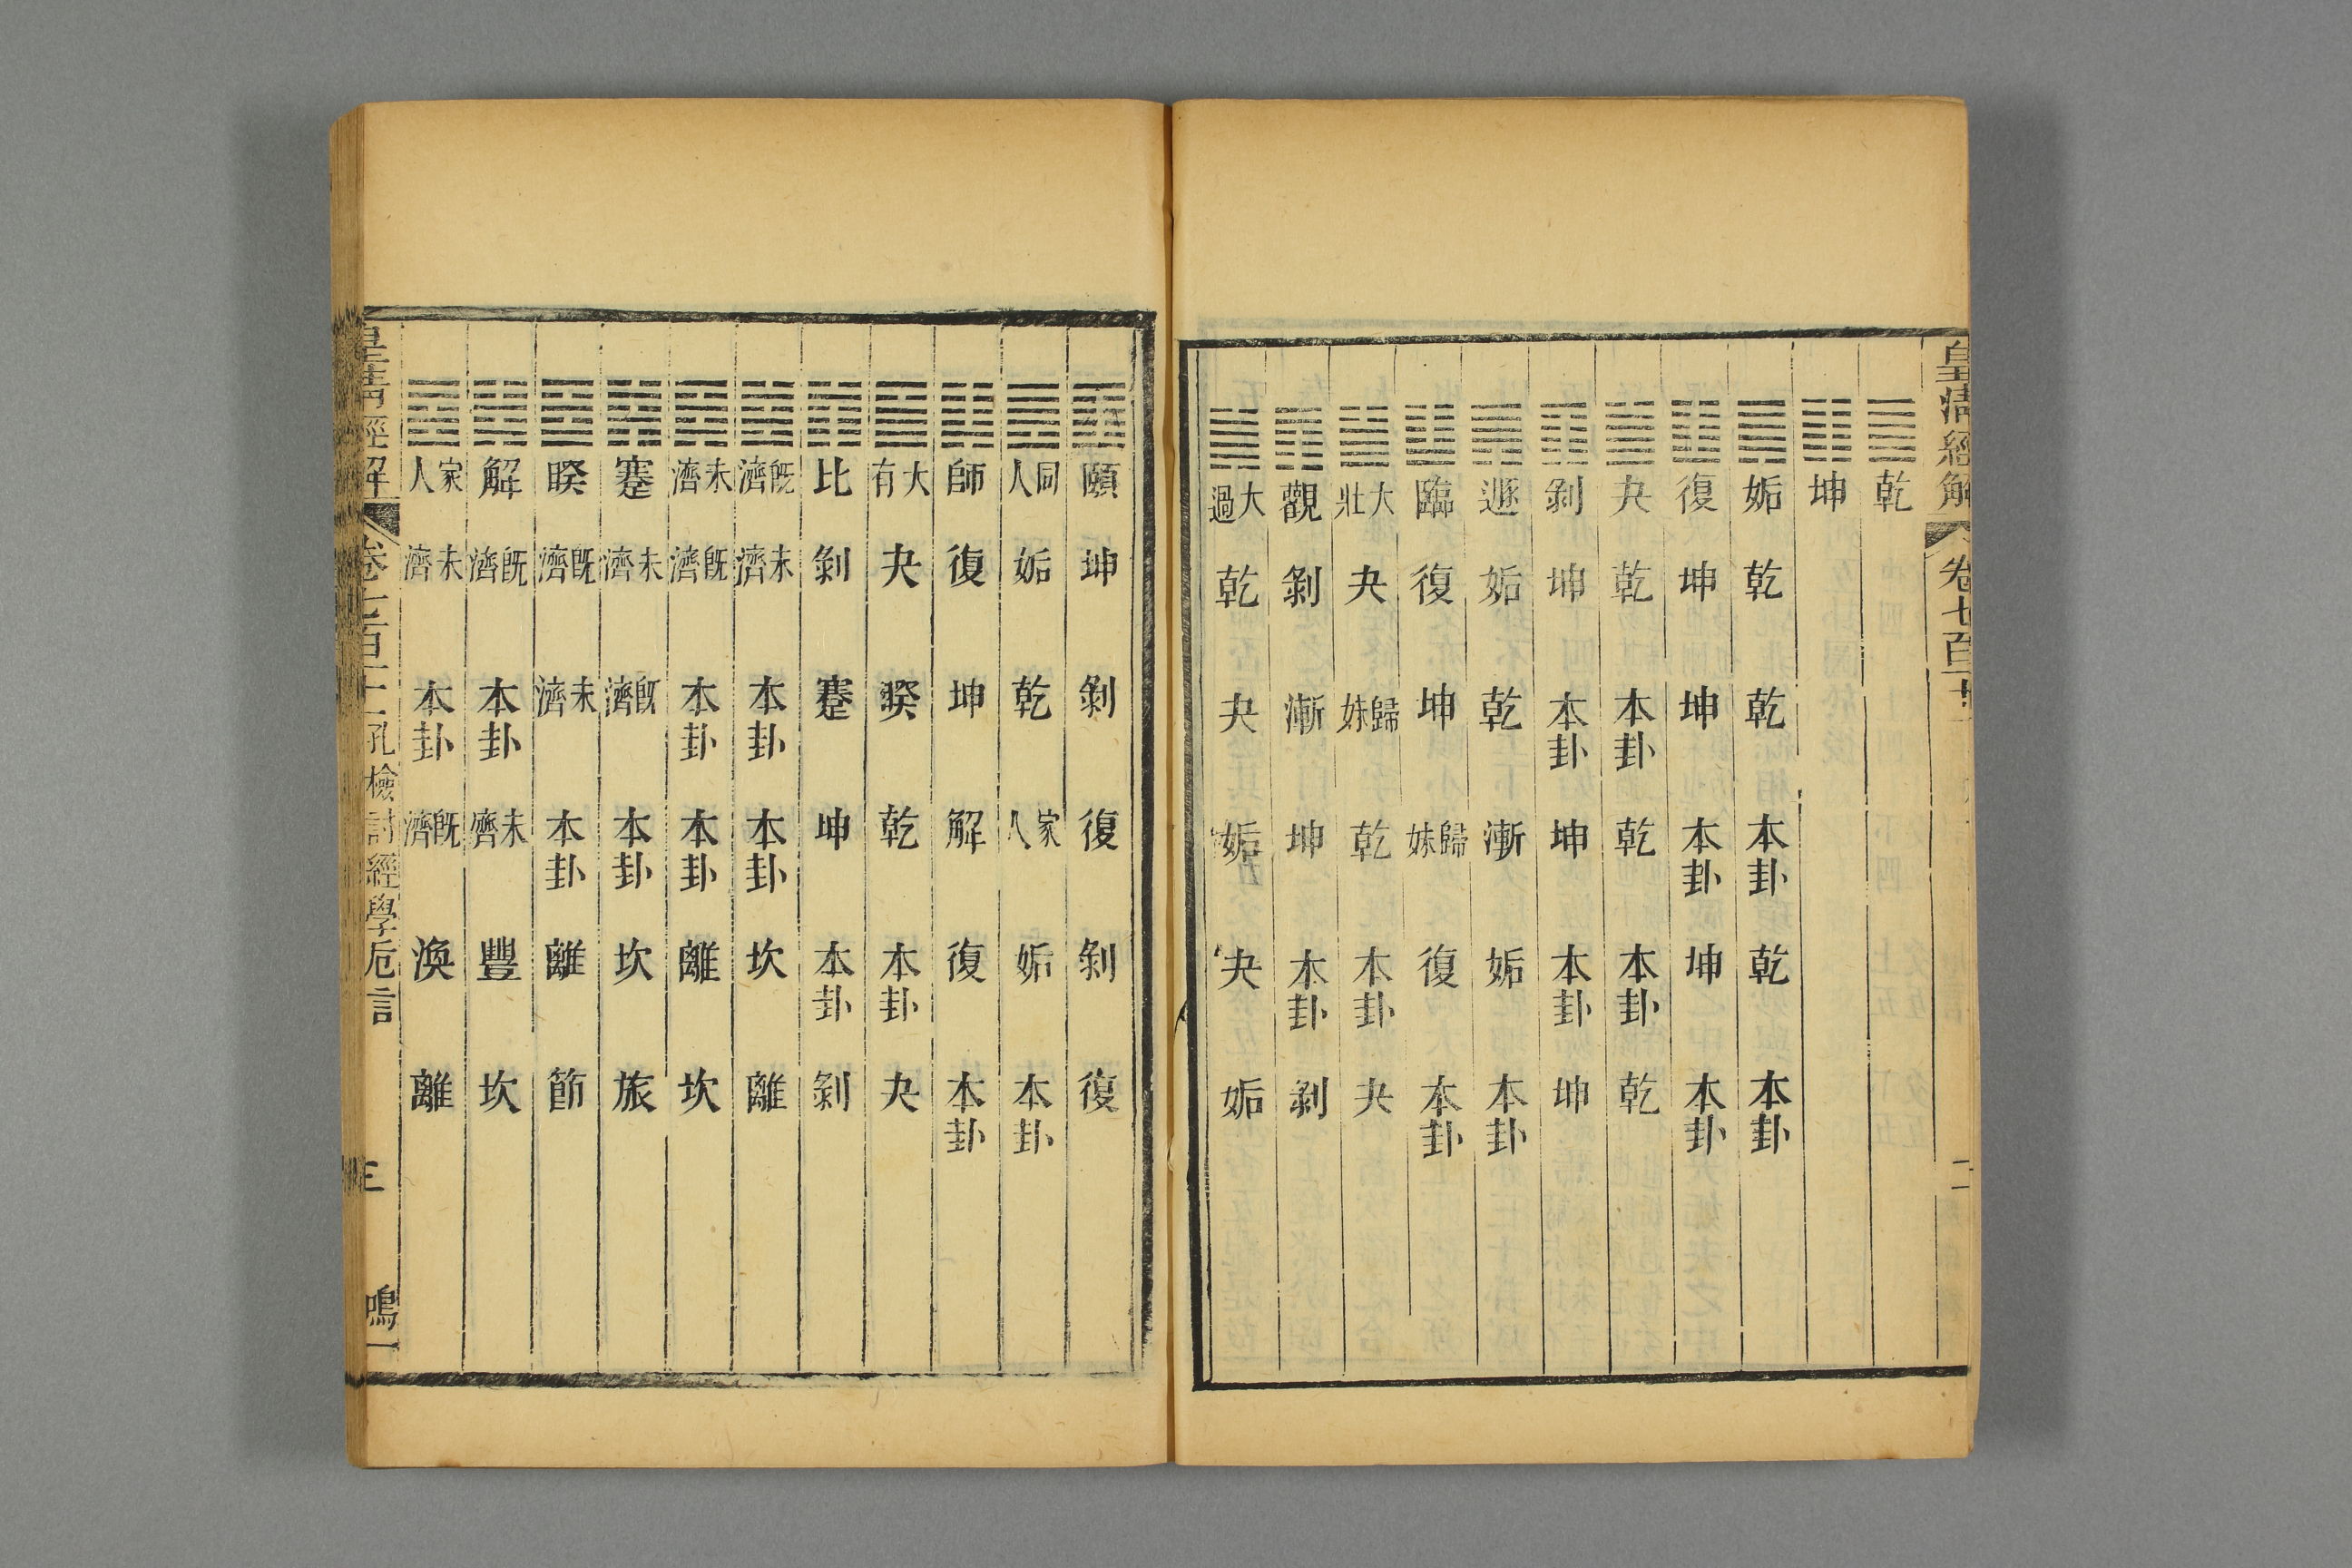 皇清經解 卷七百十一 二
乾
坤
姤 乾 乾 本卦 乾 本卦
復 坤 坤 本卦 坤 本卦
夬 乾 本卦 乾 本卦 乾
剝 坤 本卦 坤 本卦 坤
遯 姤 乾 漸 姤 本卦
臨 復 坤 歸妹 復 本卦
大壯 夬 歸妹 乾 本卦 夬
觀 剝 漸 坤 本卦 剝
大過 乾 夬 姤 夬 姤
頤 坤 剝 復 剝 復
同人 姤 乾 家人 姤 本卦
師 復 坤 解 復 本卦
大有 夬 睽 乾 本卦 夬
比 剝 蹇 坤 本卦 剝
既濟 未濟 本卦 本卦 坎 離
未濟 既濟 本卦 本卦 離 坎
蹇 未濟 既濟 本卦 坎 旅
睽 既濟 未濟 本卦 離 節
解 既濟 本卦 未濟 豐 坎
家人 未濟 本卦 既濟 渙 離
皇清經解 卷七百十一 孔檢討經學卮言 三 鳴一